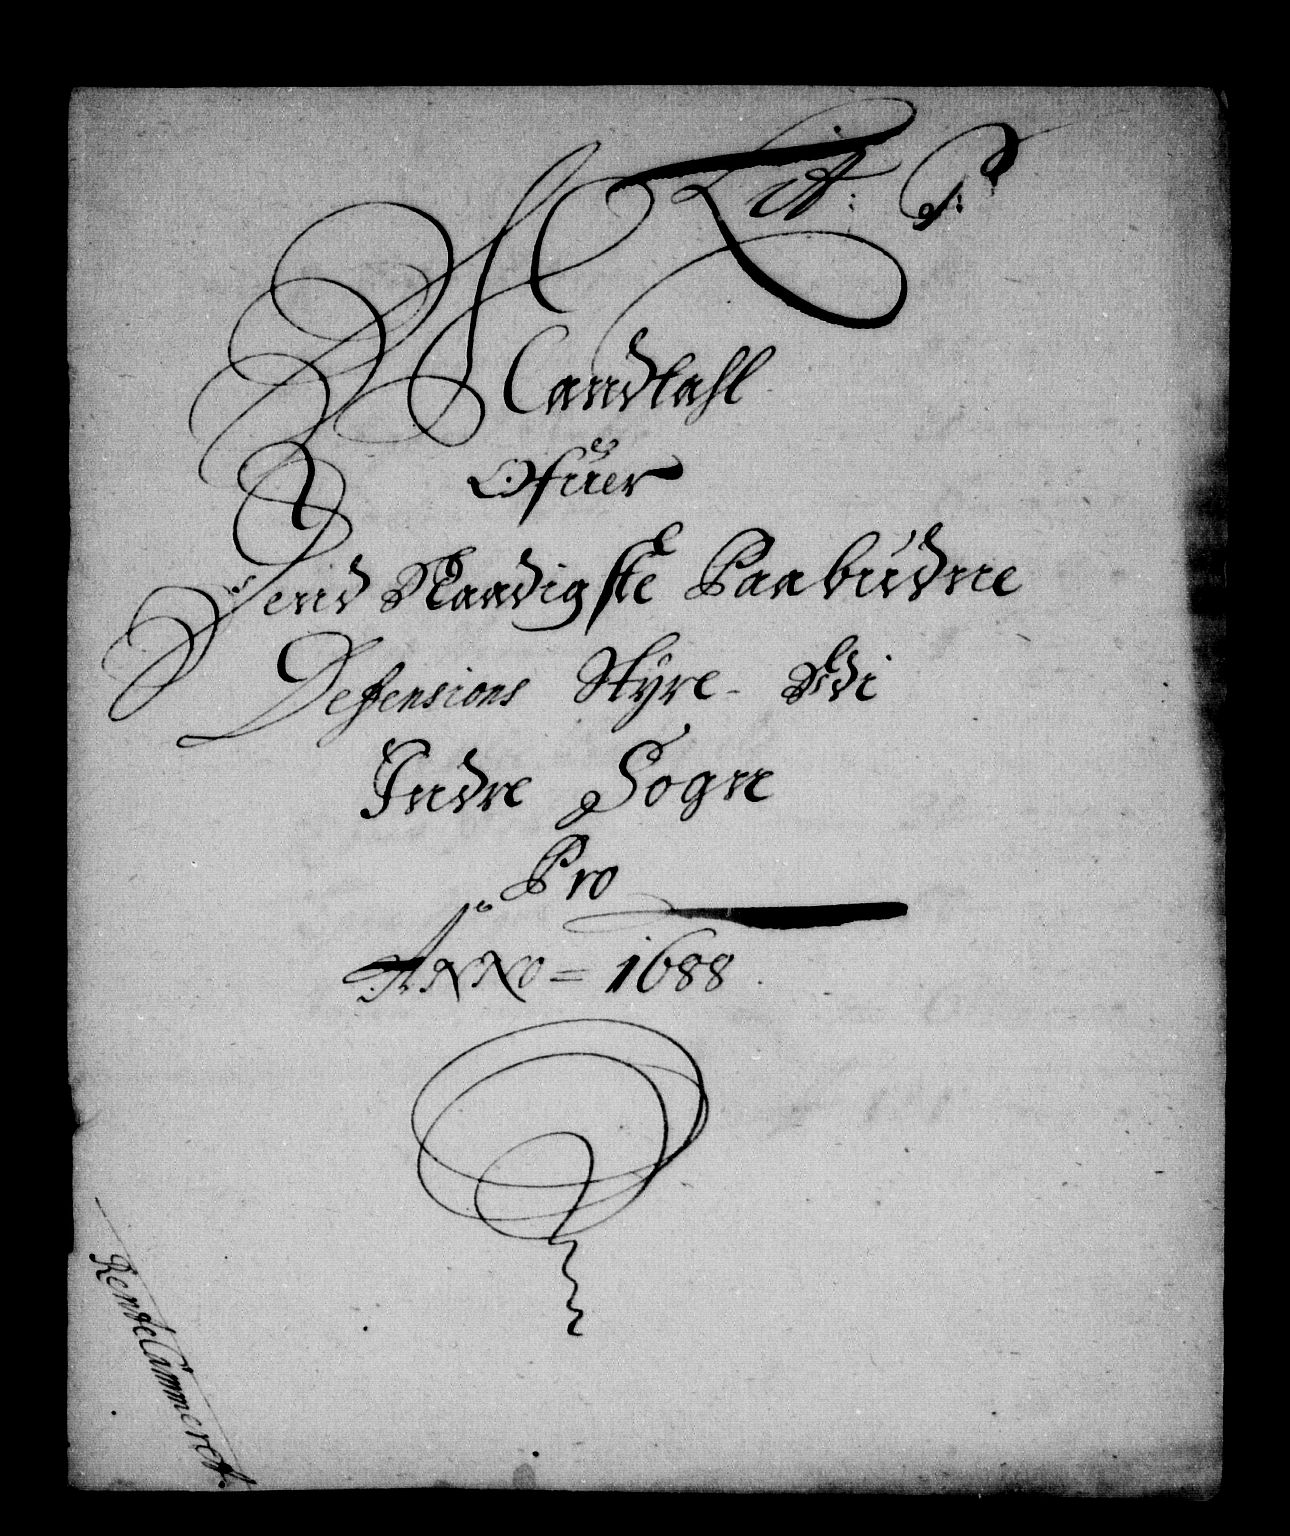 Lit:
Mandtahl
Ofuer
Dend Naadigste Paabudne
Defensions Styre. Udi
Indre Sogne
Pro
Anno = 1688
RenteCammeret.